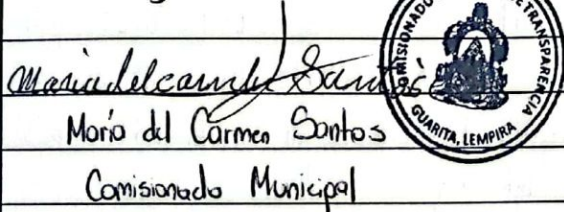 Mariadelcarmen Santos
María del Carmen Santos
Comisionado Municipal
COMISIONADO DE TRANSPARENCIA
GUARITA, LEMPIRA